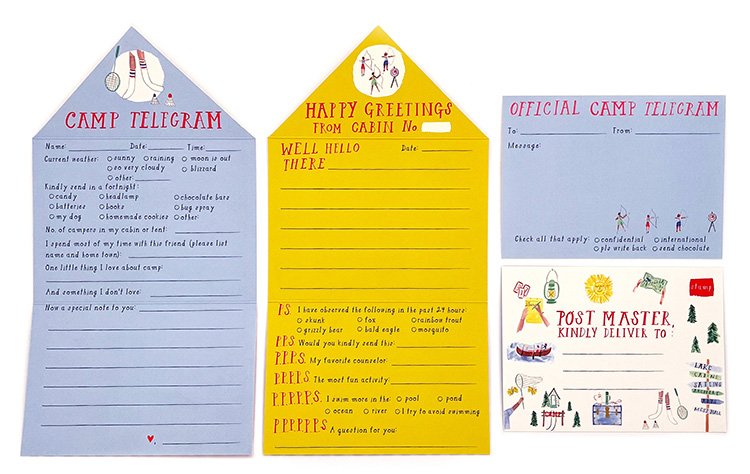 CAMP TELEGRAM
Name: Date: Time:
Current weather: sunny raining moon is out
so very cloudy blizzard
other:
Kindly send in a fortnight:
candy headlamp chocolate bars
batteries books bug spray
my dog homemade cookies other:
No. of campers in my cabin or tent:
I spend most of my time with this friend (please list
name and home town):
One little thing I love about camp:
And something I don't love:
Now a special note to you:
HAPPY GREETINGS
FROM CABIN No.
WELL HELLO Date:
THERE
P.S. I have observed the following in the past 24 hours:
skunk fox rainbow trout
grizzly bear bald eagle mosquito
P.P.S. Would you kindly send this:
P.P.P.S. My favorite counselor:
P.P.P.P.S. The most fun activity:
P.P.P.P.P.S. I swim more in the: pool pond
ocean river I try to avoid swimming
P.P.P.P.P.P.S A question for you:
OFFICIAL CAMP TELEGRAM
To: From:
Message:
Check all that apply: confidential international
pls write back send chocolate
stamp
POST MASTER,
KINDLY DELIVER TO:
LAKE
CABINS
SAILING
CAMP